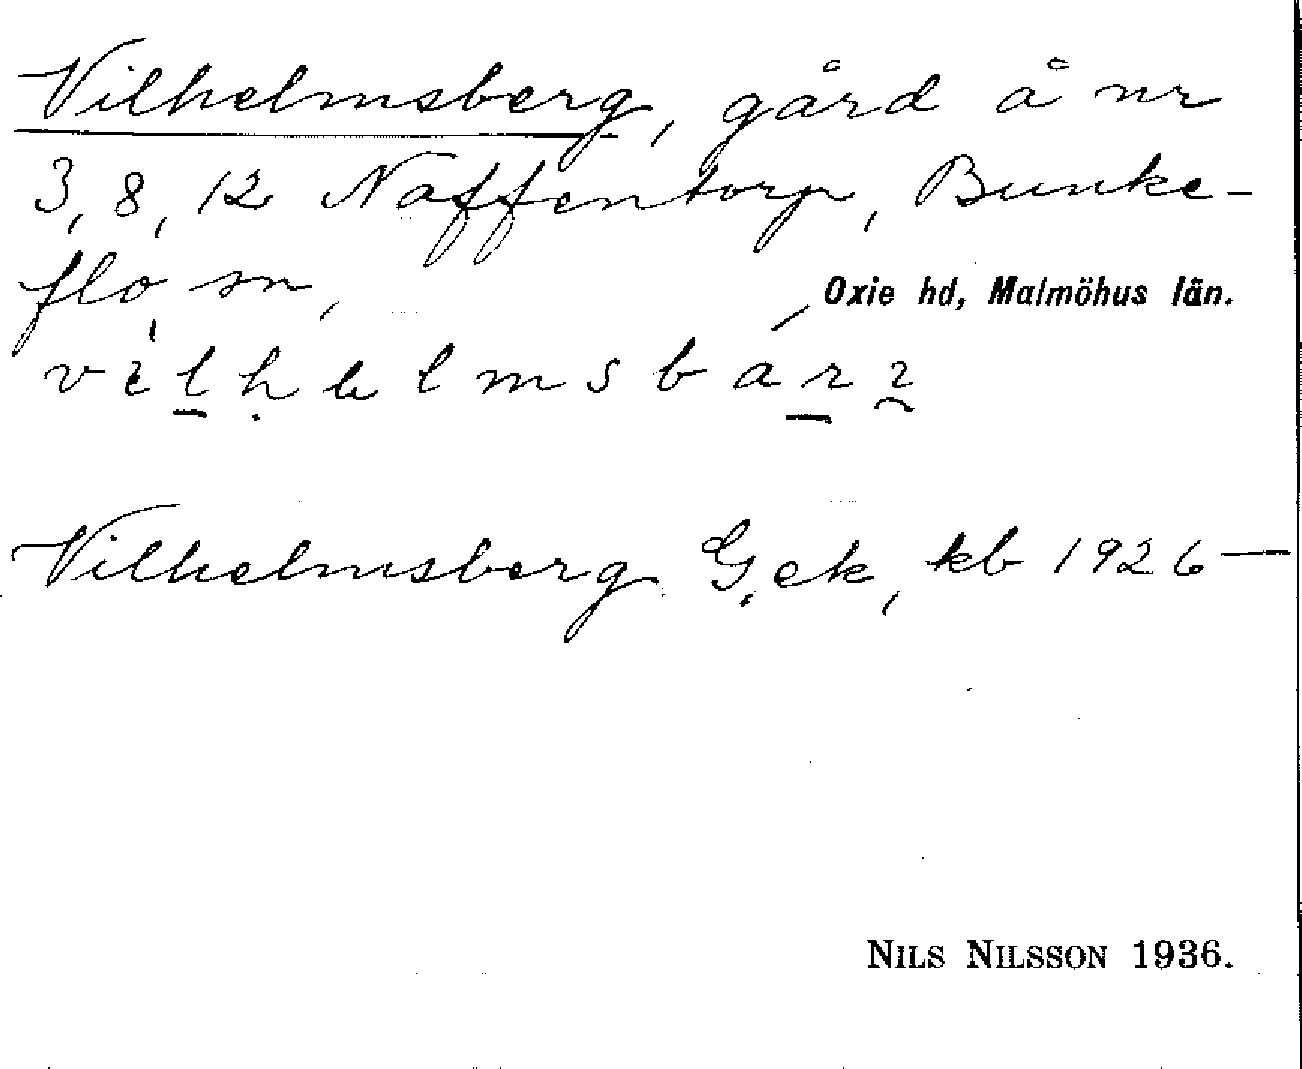 Vilhelmsberg, gård å nr
3, 8, 12 Naffentorp, Bunke-
flo sn, Oxie hd, Malmöhus län.
Vilhelmsberg G. ek, kb 1926—
NILS NILSSON 1936.